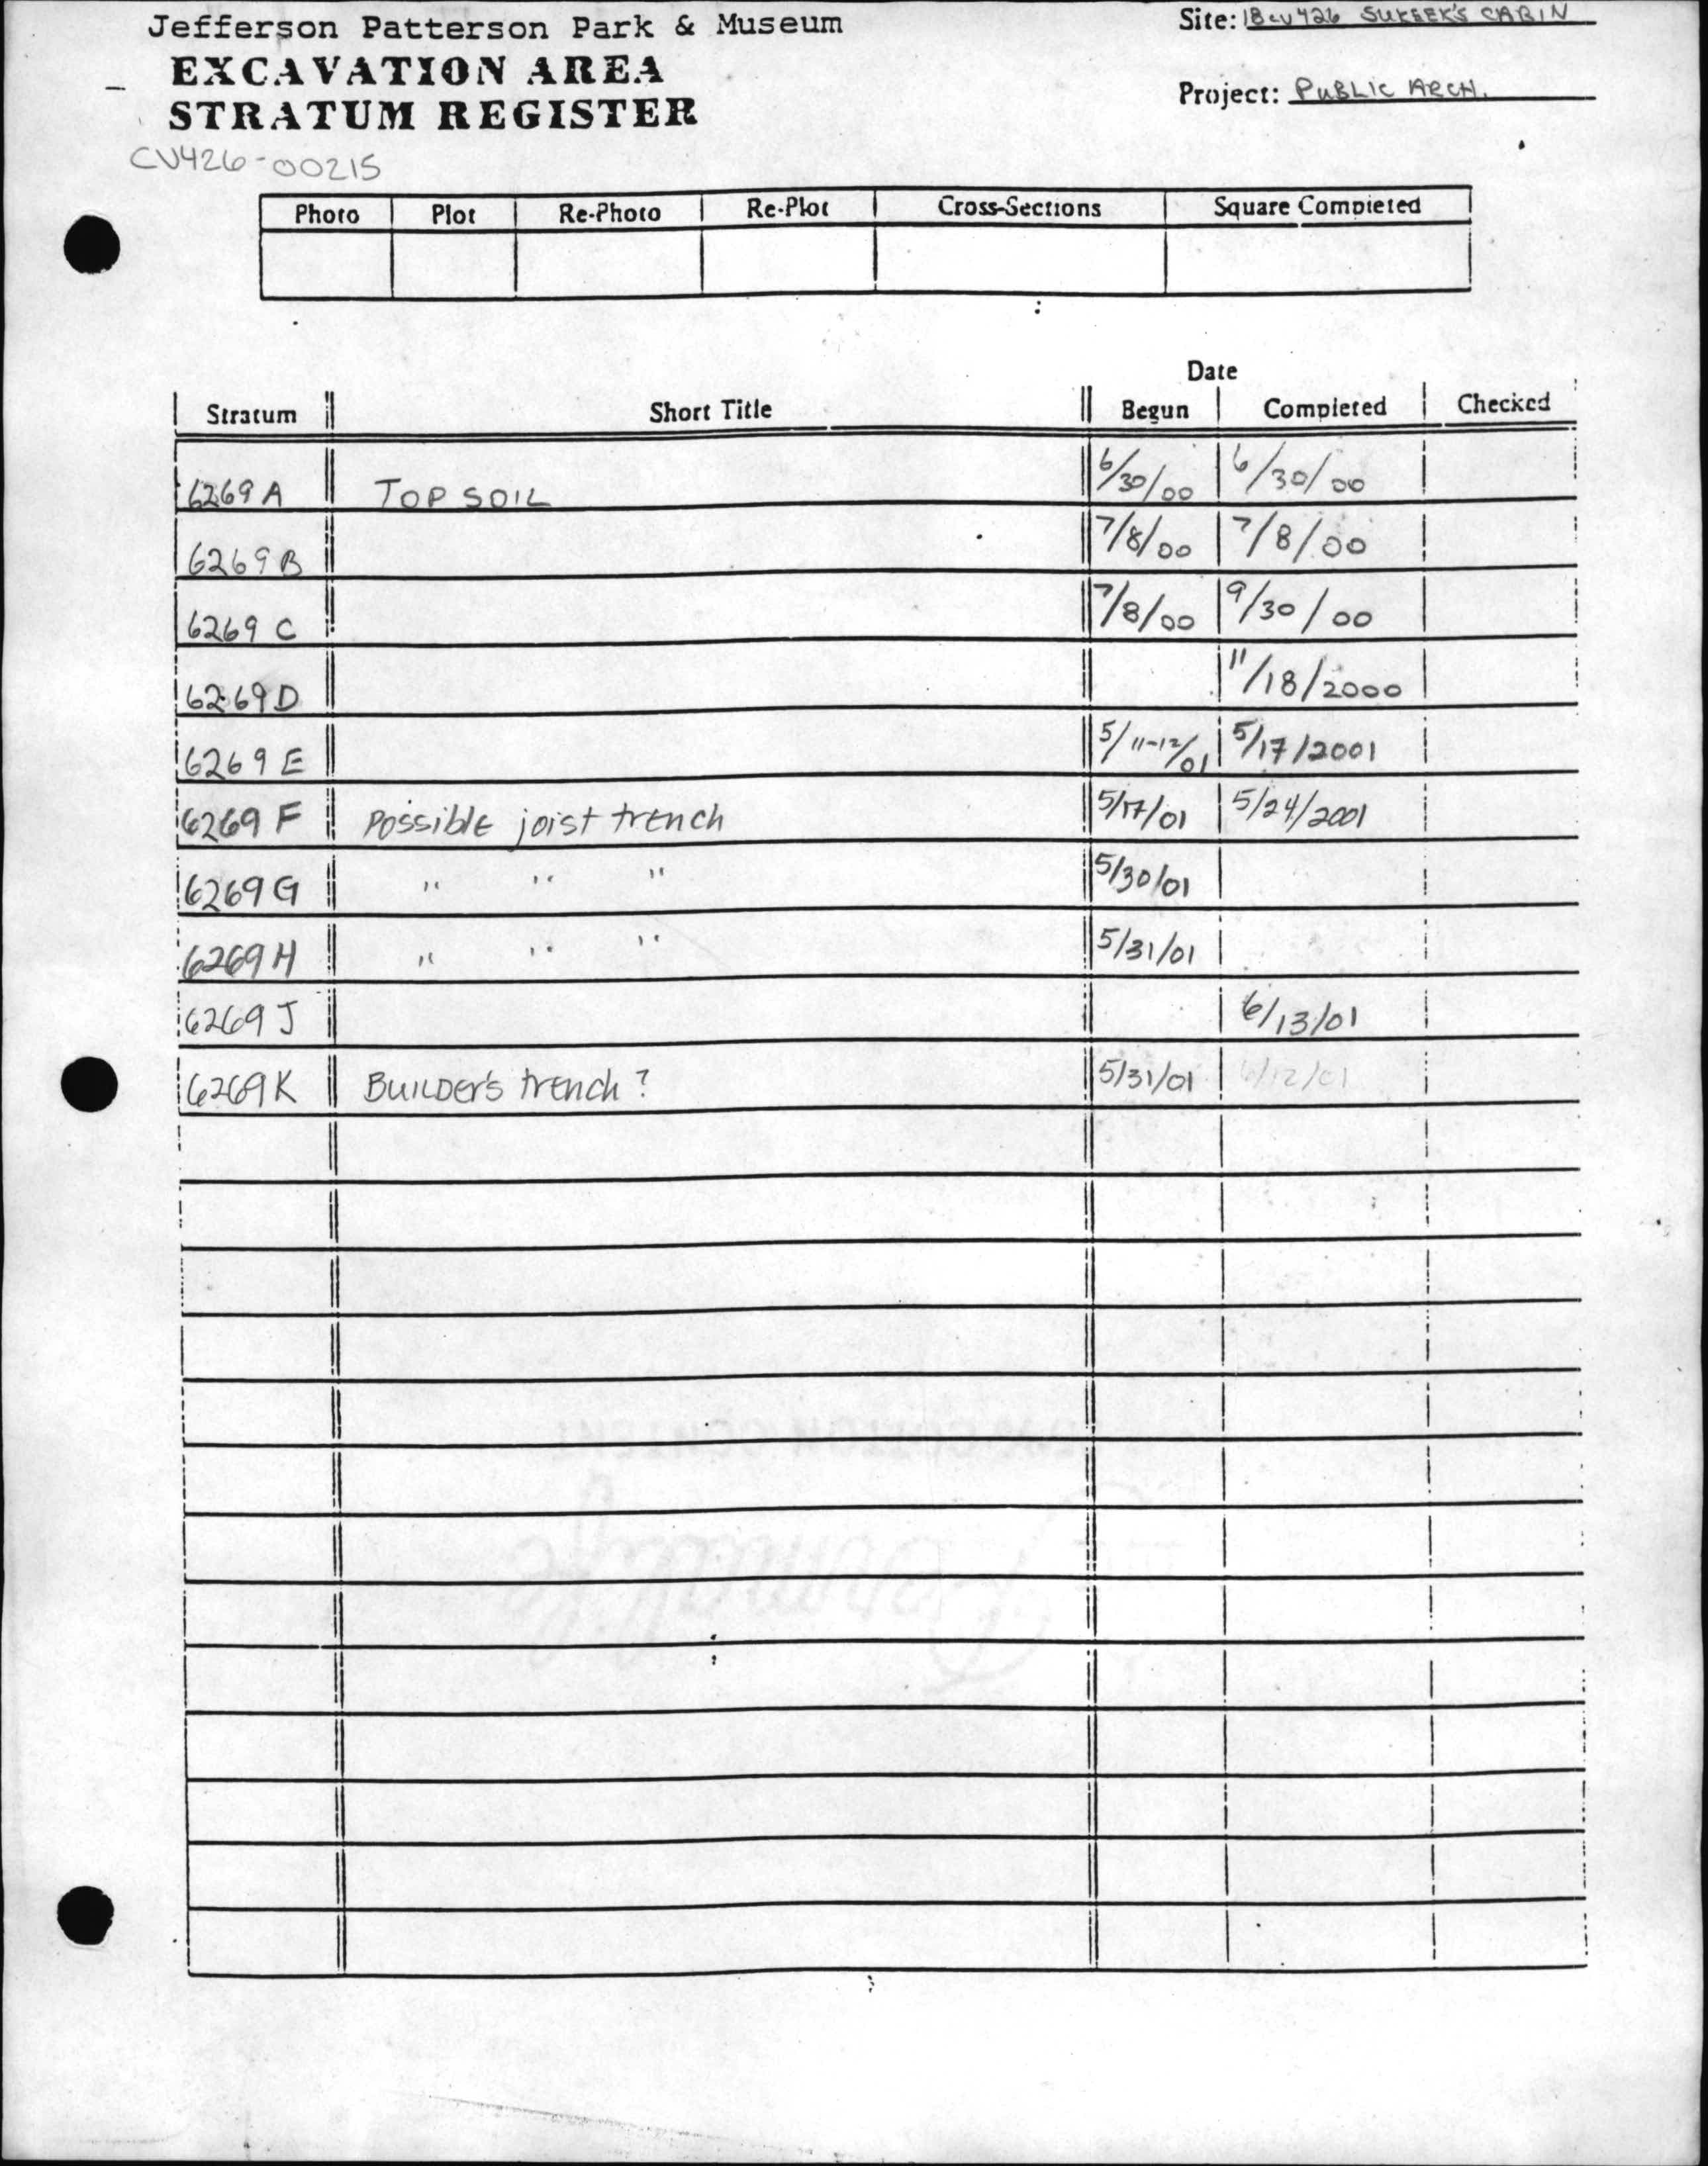 Jefferson Patterson Park & Museum
EXCAVATION AREA
STRATUM REGISTER
CV426-00215
Site: 18CV426 SUKEEK'S CABIN
Project: PUBLIC ARCH.
Photo Plot Re-Photo Re-Plot Cross-Sections Square Completed
Date
Stratum Short Title Begun Completed Checked
6269 A TOP SOIL 6/30/00 6/30/00
6269 B 7/8/00 7/8/00
6269 C 7/8/00 9/30/00
6269 D 11/18/2000
6269 E 5/11-12/01 5/17/2001
6269 F Possible joist trench 5/17/01 5/24/2001
6269 G " " " 5/30/01
6269 H " " " 5/31/01
6269 J 6/13/01
6269 K BUILDER'S trench? 5/31/01 6/12/01